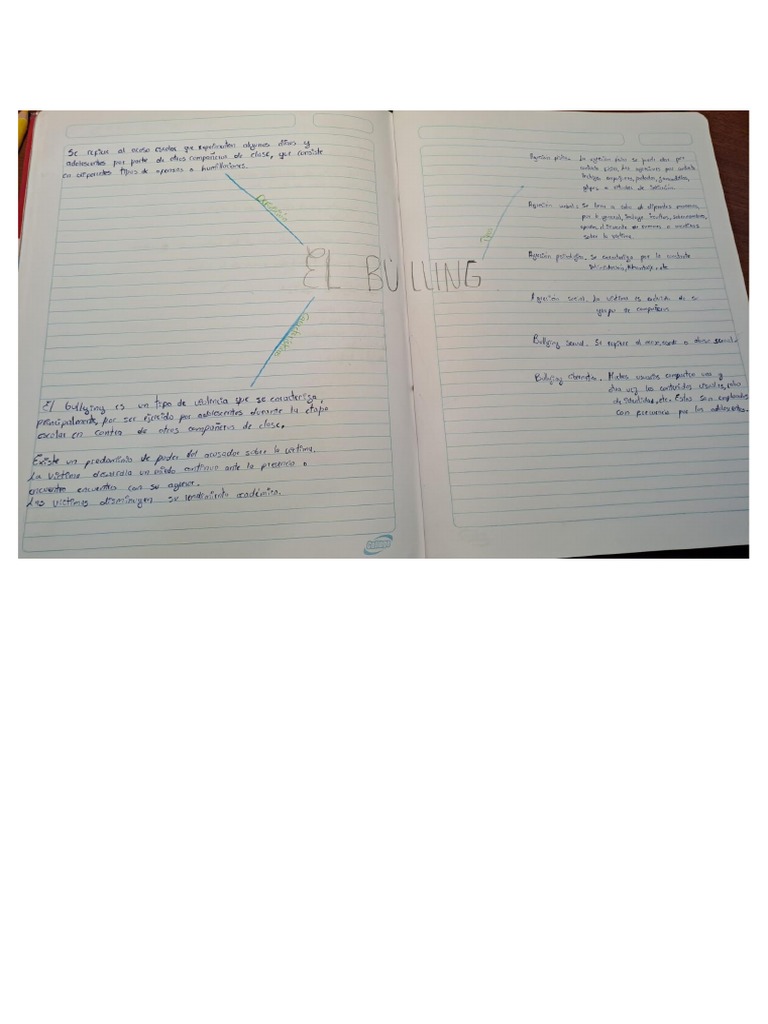 Se refiere al acoso escolar que experimentan algunos niños y
adolescentes por parte de otros compañeros de clase, que consiste
en diferentes tipos de ofensas o humillaciones.
EL BULLING
El bullying es un tipo de violencia que se caracteriza,
principalmente, por ser ejercido por adolescentes durante la etapa
escolar en contra de otros compañeros de clase.
Existe un predominio de poder del acosador sobre la víctima.
La víctima desarrolla un miedo continuo ante la presencia o
encuentro con su agresor.
Las víctimas disminuyen su rendimiento académico.
Agresión física. La agresión física se puede
contacto físico,
incluye empujones, patadas,
golpes
Agresión verbal. Se lleva a cabo de diferentes maneras,
por lo general, incluye insultos,
apodos,
sobre la víctima.
Agresión psicológica. Se caracteriza por la constante
etc
Agresión social. La víctima es excluida de su
grupo de compañeros
Bullying sexual. Se refiere al o abuso sexual.
Bullying cibernético. Muchos usuarios comparten una y
otra vez los contenidos visuales, robo
de identidad, etc. Estos son empleados
con frecuencia por los adolescentes.